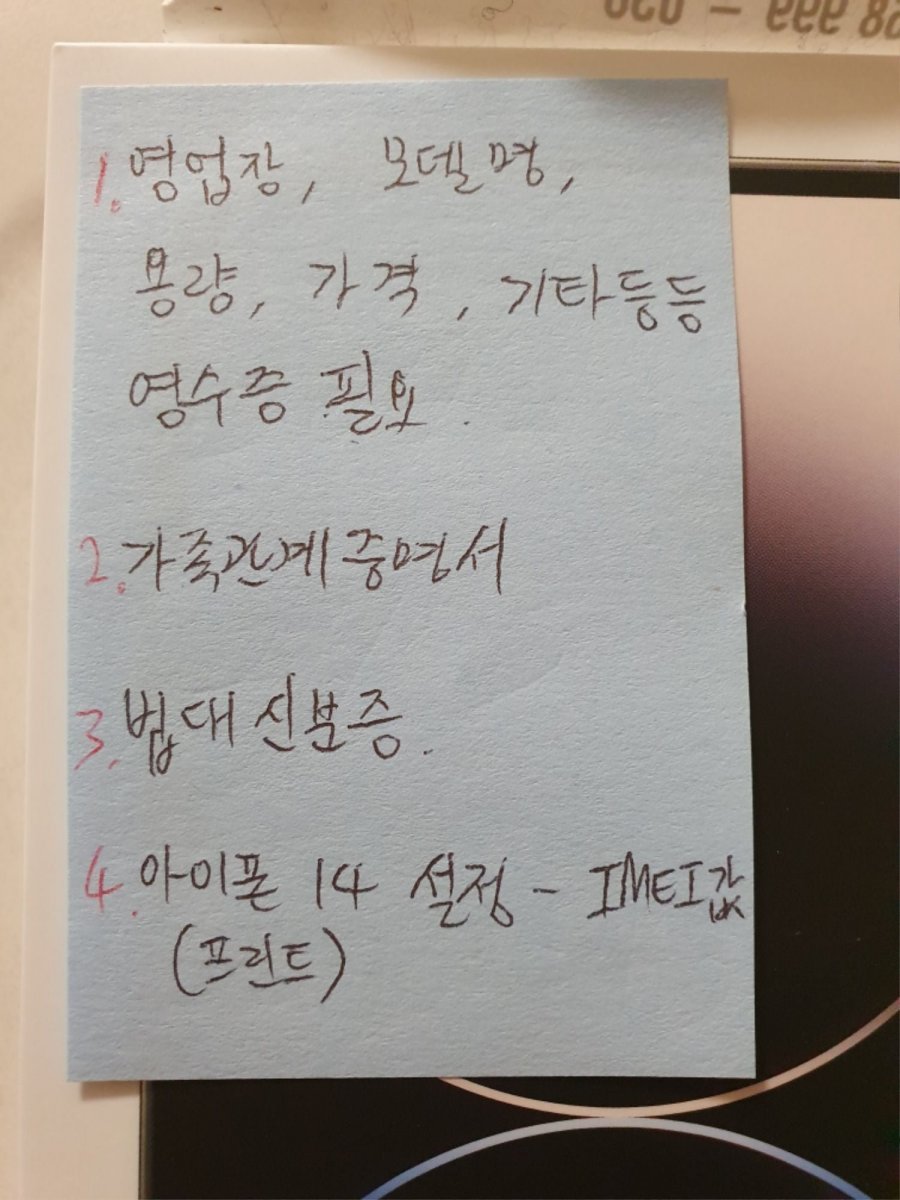 1. 영업장, 모델명,
용량, 가격, 기타등등
영수증 필요.
2. 가족관계증명서
3. 법대 신분증.
4. 아이폰 14 설정 - IMEI값
(프린트)